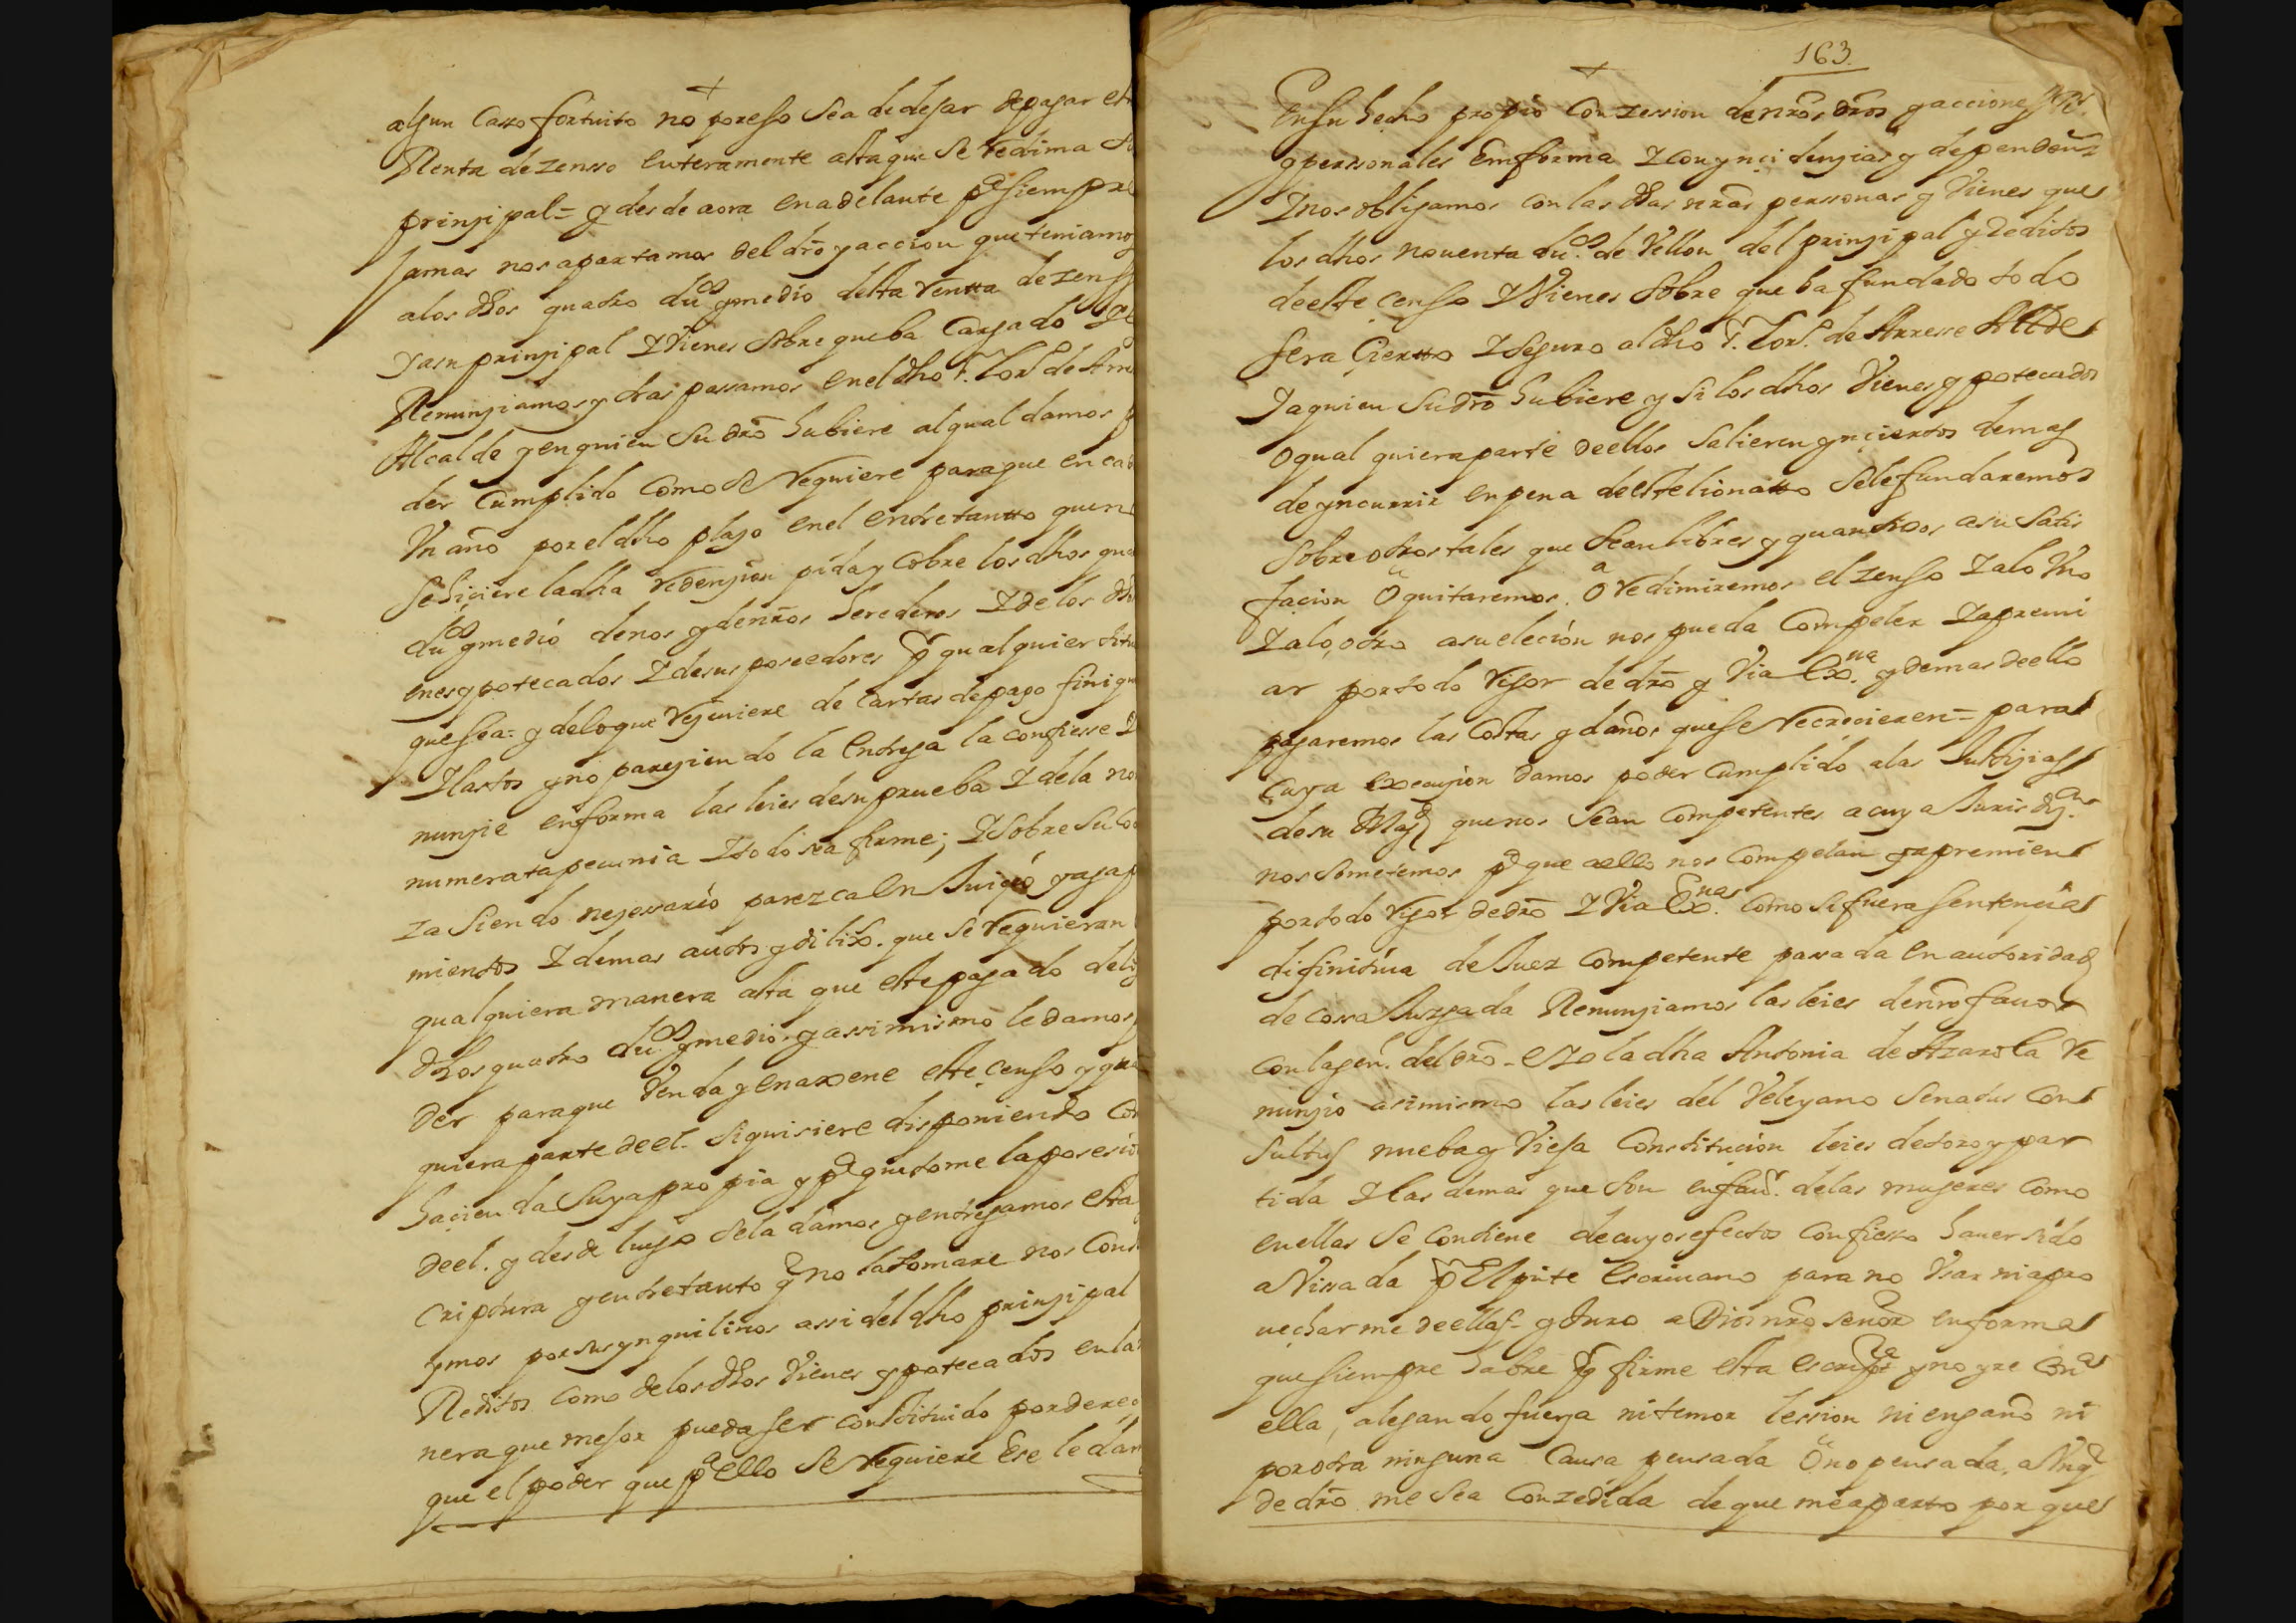 algun Caso fortuito no poreso Sea dedejar depagar
Renta dezensso enteramente asta que Se redima
prinçipal = y desde aora enadelante pa siempre
Jamas nos apartamos del dro y accion que teniamos
alos dhos quatro dus. y medio desta rentta de
Yasu prinçipal I Vienes sobre que ba Cargado
Renunçiamos y traspassamos enel dho
Alcalde y en quien Su dro hubiere al qual damos
der Cumplido Como se requiere paraque en
Vn año por el dho plaço enel entretantto que
Se hiçiere la dha redençion pida y Cobre los dhos
dus. y medio denos y de nros herederos I de los
enes ypotecados I de sus poseedores por qualquier
que sea = y de lo que reçiviere de Cartas de pago
I lastos y no pareçiendo la entrega la confiesse
nunçie en forma las leies de su prueba I de la
numerata pecunia I todo sea firme; I Sobre Su
za Siendo neçessario parezca en Juiçio y aga
mientos I demas autos y dilixs. que Se requieran
qualquiera manera asta que este pagado
dhos quatro dus. y medio y assimismo le damos
der paraque Venda y enaxene este çenso y
quiera parte de el. Si quisiere disponiendo
haçienda Suya propia y pa que tome la posesio
de el. y desde luego Se la damos y entregamos esta
criptura y entretanto q no la tomare nos
ymos por sus ynquilinos assi del dho prinçipal
Reditos Como de los dhos Vienes ypotecados en la
nera que mejor pueda Ser constituido por
que el poder que pa ello Se requiere Ese le
163.
En su hecho propio Conzession de nros dros y acciones
y perssonales Em forma I con ynçidençias y
I nos obligamos con las dhas nras perssonas y Vienes que
los dhos nouenta dus. de Vellon del prinçipal y Reditos
de este çenso I Vienes Sobre que ba fundado todo
Sera Çiertto I Seguro al dho de Arresse
I a quien Su dro hubiere y Si los dhos Vienes ypotecados
O qual quiera parte de ellos Salieren ynçiertos demas
de yncurrir en pena de estelionatto Se le fundaremos
Sobre otros tales que Sean libres y quantiosos a su Satis
façion O quitaremos. O redimiremos el zenso I a lo Vno
I a lo, otro a su eleçion nos pueda Compeler I apremi
ar por todo rigor de dro y Via Exva. y demas de ello
pagaremos las Costas y daños que Se recreçieren = para
Cuya execuçion damos poder Cumplido a las Justiçias
de su Magd que nos Sean Competentes a cuya
nos Sometemos pa que a ello nos Compelan y apremien
por todo rigor de dro I Via Como Si fuera Sentençia
difinitiua de Juez Competente passada en autoridad
de cossa Juzgada Renunçiamos las leies de nro fauor
con la gen. del dro = I Yo la dha Antonia de Azarola re
nunçio asimismo las leies del Veleyano Senatus Con
Sultus nueba y Vieja Constitucion leies de toro y par
tida I las demas que Son en faur. de las mugeres Como
en ellas Se Contiene de cuyos efectos Confiesso hauer sido
a Vissada por El pnte Escriuano para no Vsar ni apro
uecharme de ellas = y Juro a Dios nro Señor en forma
que siempre habre por firme esta escripra y no yre Cona
ella, alegando fuerça ni temor lession ni engaño ni
por otra ninguna Causa pensada O no pensada, a Vnq
de dro. me Sea Conzedida de que me aparto por que